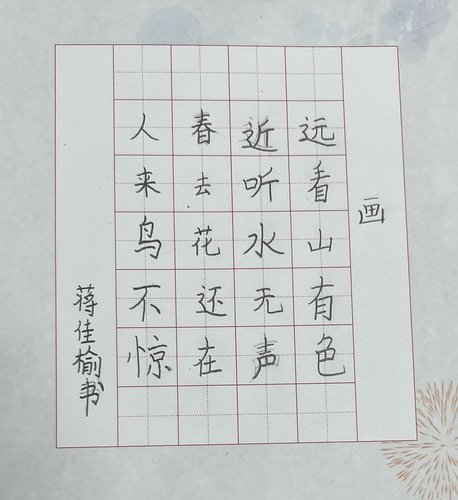 画
远看山有色
近听水无声
春去花还在
人来鸟不惊
蒋佳榆书